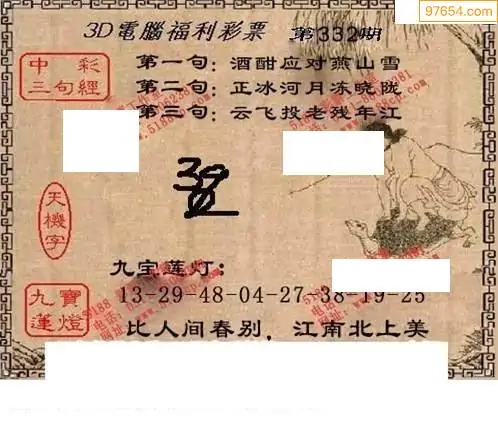 97654.com
3D電腦福利彩票 第332期
中彩
三句經
第一句：酒酣应对燕山雪
第二句：正冰河月冻晓陇
第三句：云飞投老残年江
天機字
九宝莲灯：
九寶
蓮燈
13-29-48-04-27-38-19-25
比人间春别，江南北上美